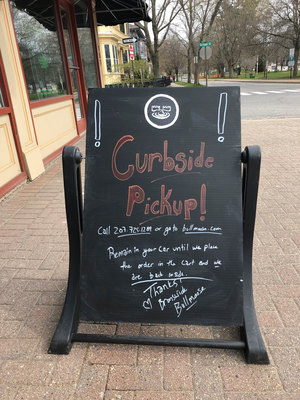 Curbside
Pickup!
Call 207.725.1289 or go to bullmoose.com
Remain in your car until we place
the order in the Cart and we
are back inside.
Thanks!
Brunswick
Bullmoose